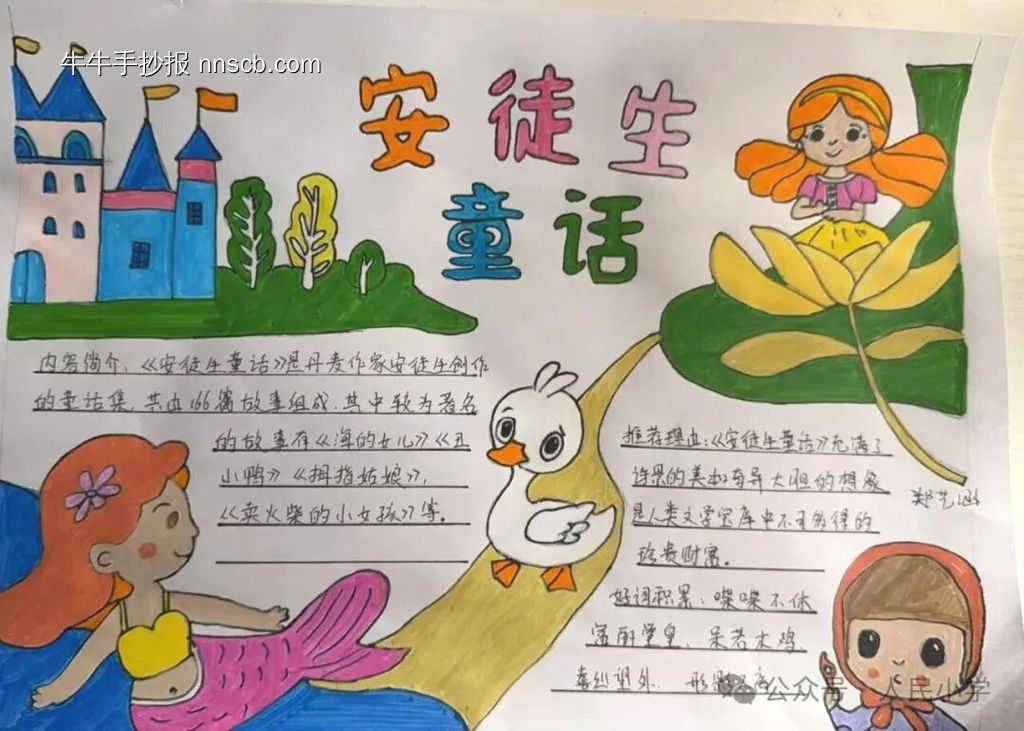 牛牛手抄报 nnscb.com
安徒生
童话
内容简介:《安徒生童话》是丹麦作家安徒生创作
的童话集,共由166篇故事组成.其中较为著名
的故事有《海的女儿》《丑
小鸭》《拇指姑娘》,
《卖火柴的小女孩》等。
推荐理由:《安徒生童话》充满了
诗累的美和奇异大胆的想象
是人类文学宝库中不可多得的
珍贵财富。
好词积累:喋喋不休
富丽堂皇、呆若木鸡.
喜出望外. 形
公众号·人民小学